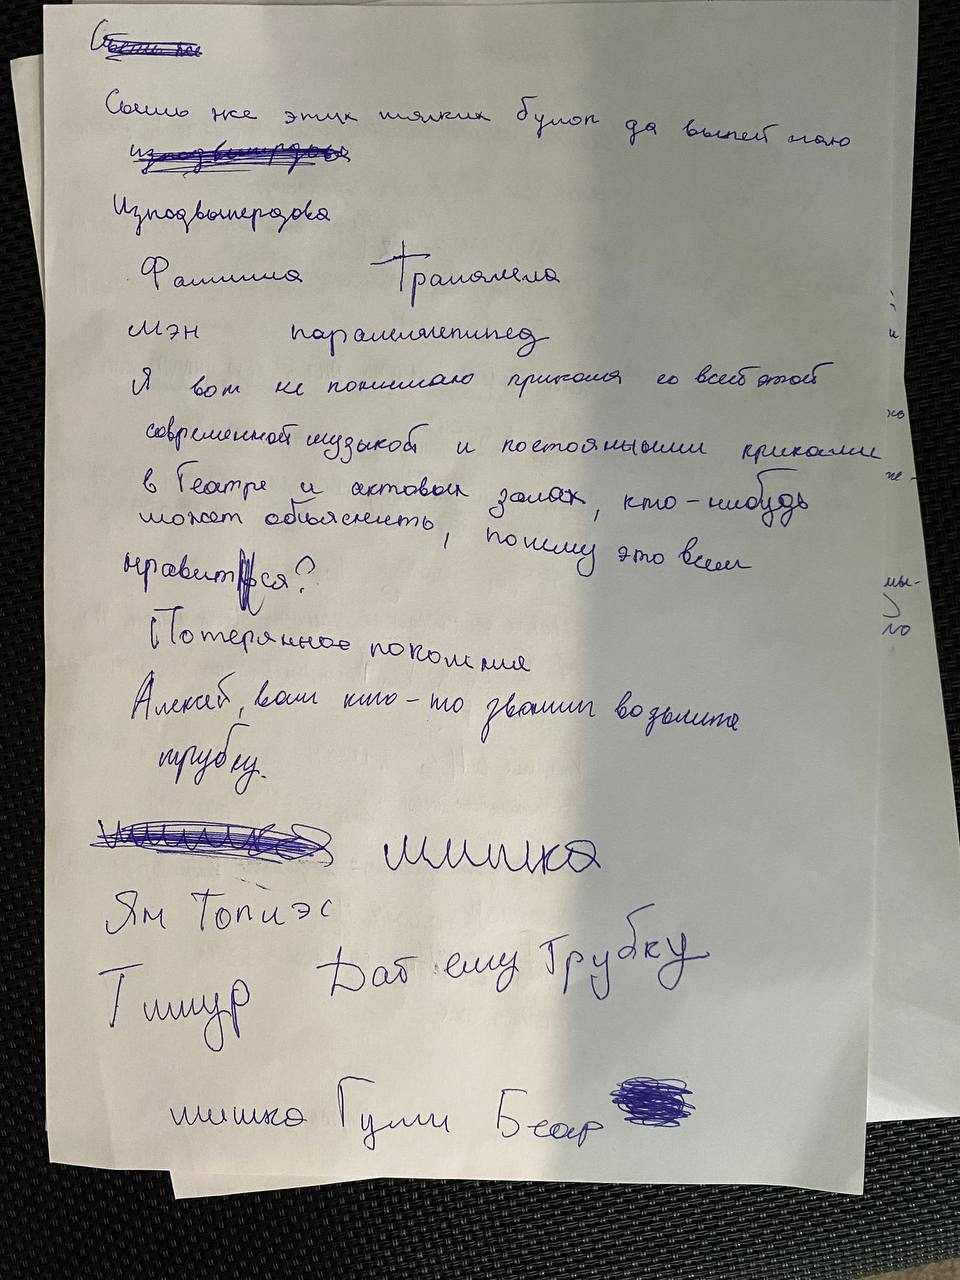 же этих мягких булоп да выпей чаю
Изподвыпердова
Фамилия Трапалела
мэн параллелепипед
Я вот не понимаю прикола со всей этой
современной музыкой и постояными криками
в Театре и актовых залах, кто-нибудь
может объяснить, почему это всем
нравится?
Потерянное поколение
Алексей, вам кто-то звонит возьмите
трубку.
мишка
Ян Топлэс
Тимур Дай ему Трубку
мишка Гуми Беар